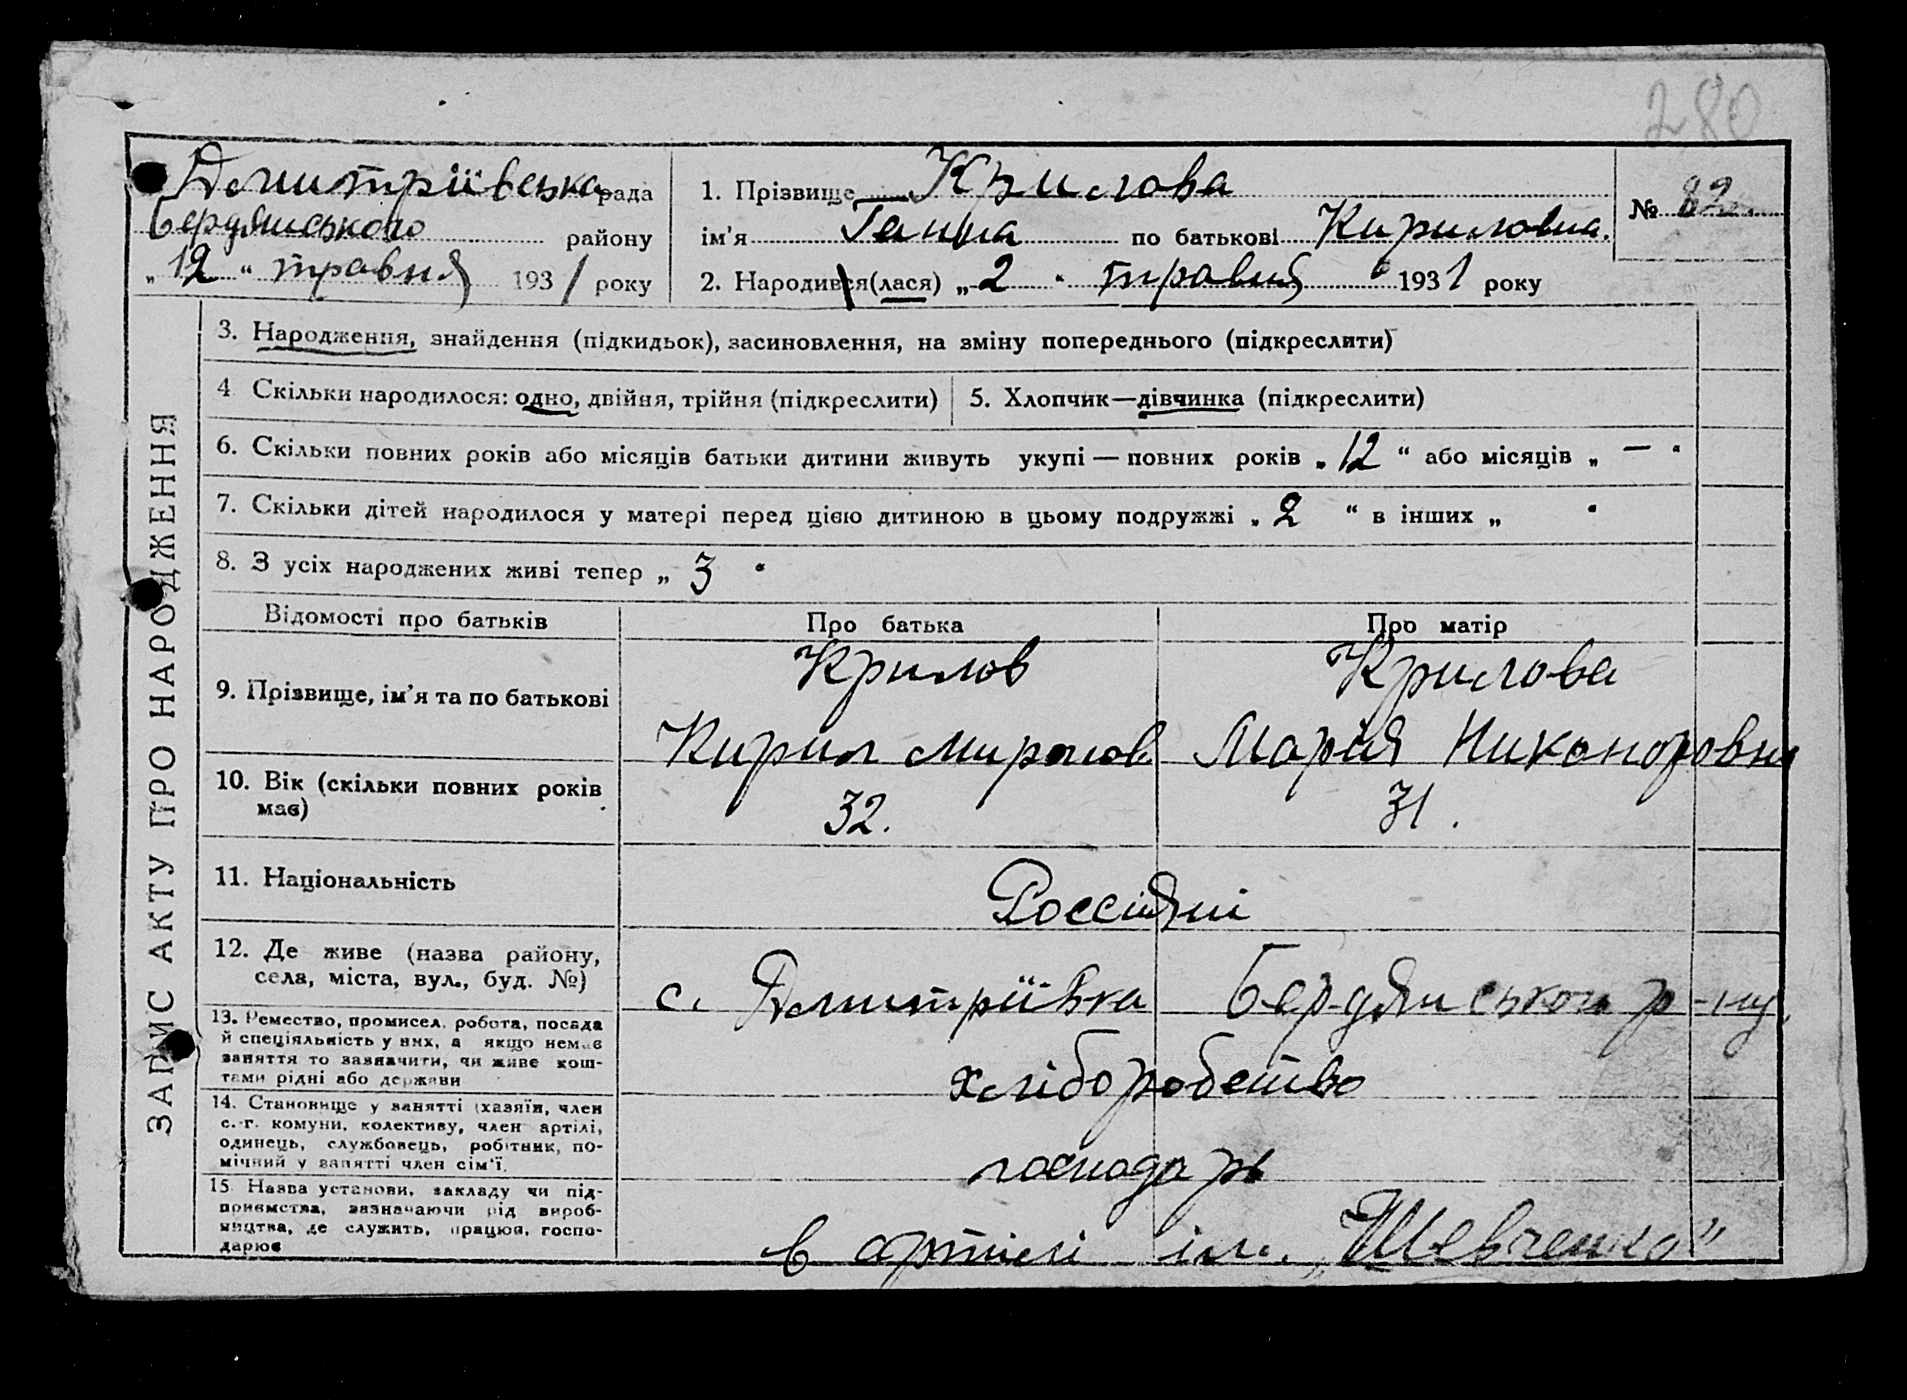 280
Дмитріївська рада
Бердянського району
„ 12 “ травня 1931 року
1. Прізвище Крилова
ім’я Ганна по батькові Кириловна.
2. Народився(лася) „ 2 “ травня 1931 року
№ 82
ЗАПИС АКТУ ПРО НАРОДЖЕННЯ
3. Народження, знайдення (підкидьок), засиновлення, на зміну попереднього (підкреслити)
4 Скільки народилося: одно, двійня, трійня (підкреслити)
5. Хлопчик—дівчинка (підкреслити)
6. Скільки повних років або місяців батьки дитини живуть укупі — повних років „ 12 “ або місяців „ — “
7. Скільки дітей народилося у матері перед цією дитиною в цьому подружжі „ 2 “ в інших „ “
8. З усіх народжених живі тепер „ 3 “
Відомості про батьків
Про батька
Про матір
9. Прізвище, ім’я та по батькові
Крилов
Кирил Миронов
Крилова
Марія Никоноровна
10. Вік (скільки повних років
має)
32.
31.
11. Національність
Россіяні
12. Де живе (назва району,
села, міста, вул., буд. №)
с. Дмитріївка Бердянського р-ну,
13. Ремество, промисел, робота, посада
й спеціяльність у них, а якщо немає
заняття то зазначити, чи живе кош-
тами рідні або держави
хліборобство
14. Становище у занятті (хазяїн, член
с.-г. комуни, колективу, член артілі,
одинець, службовець, робітник, по-
мічний у занятті член сім’ї.
господарь
15 Назва установи, закладу чи під-
приємства, зазначаючи рід вироб-
ництва, де служить, працює, госпо-
дарює
в артілі ім. „Шевченко”